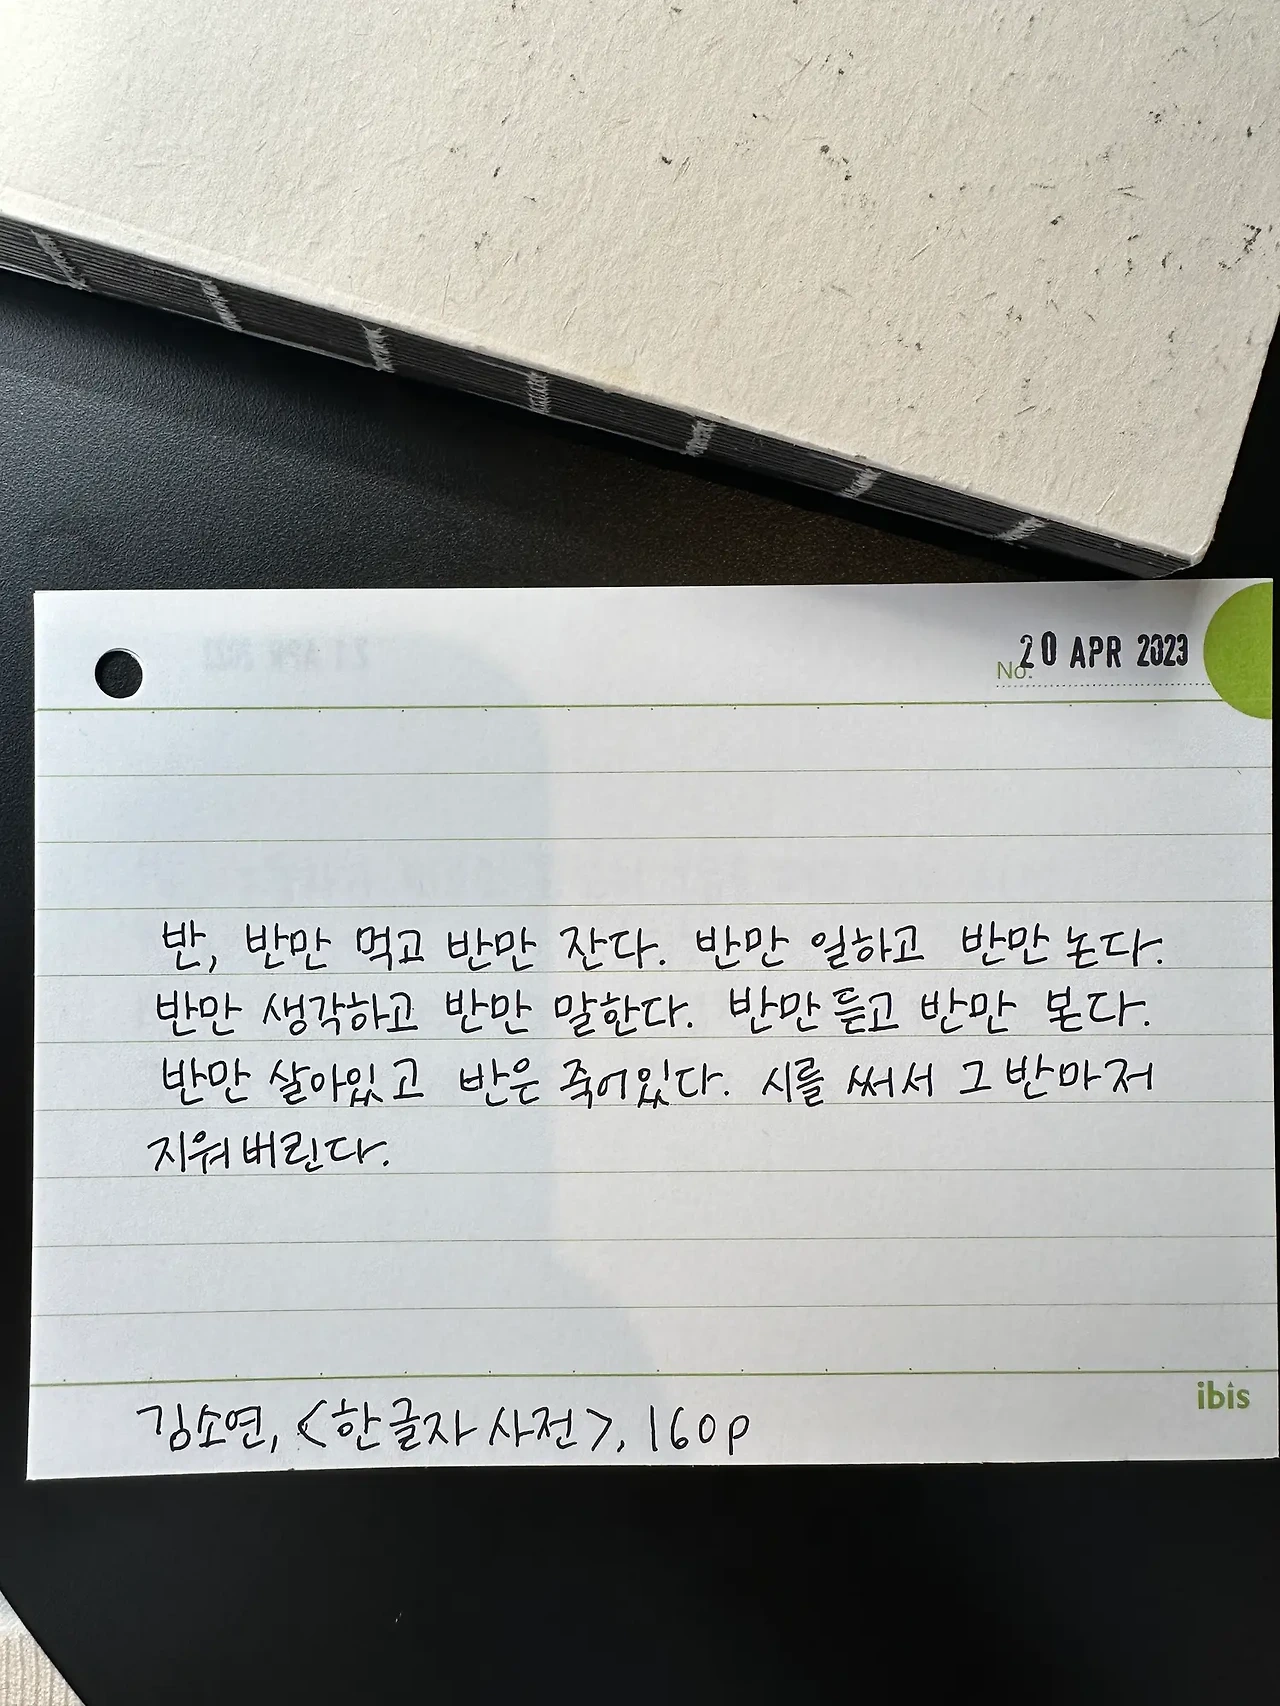 No.
20 APR 2023
반, 반만 먹고 반만 잔다. 반만 일하고 반만 논다.
반만 생각하고 반만 말한다. 반만 듣고 반만 본다.
반만 살아있고 반은 죽어있다. 시를 써서 그 반마저
지워버린다.
ibis
김소연, <한 글자 사전>, 160p